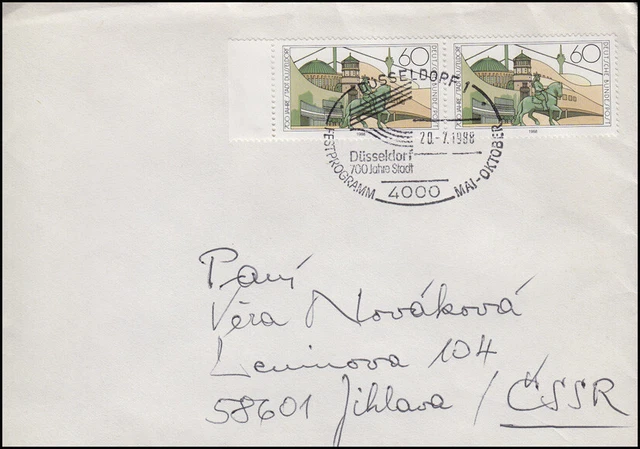 60
60
700 JAHRE STADT DÜSSELDORF
DEUTSCHE BUNDESPOST
700 JAHRE STADT DÜSSELDORF
DEUTSCHE BUNDESPOST
1988
1988
DÜSSELDORF 1
20.-7.1988
Düsseldorf
700 Jahre Stadt
4000
FESTPROGRAMM
MAI-OKTOBER
Paní
Věra Nováková
Leninova 104
58601 Jihlava / ČSSR